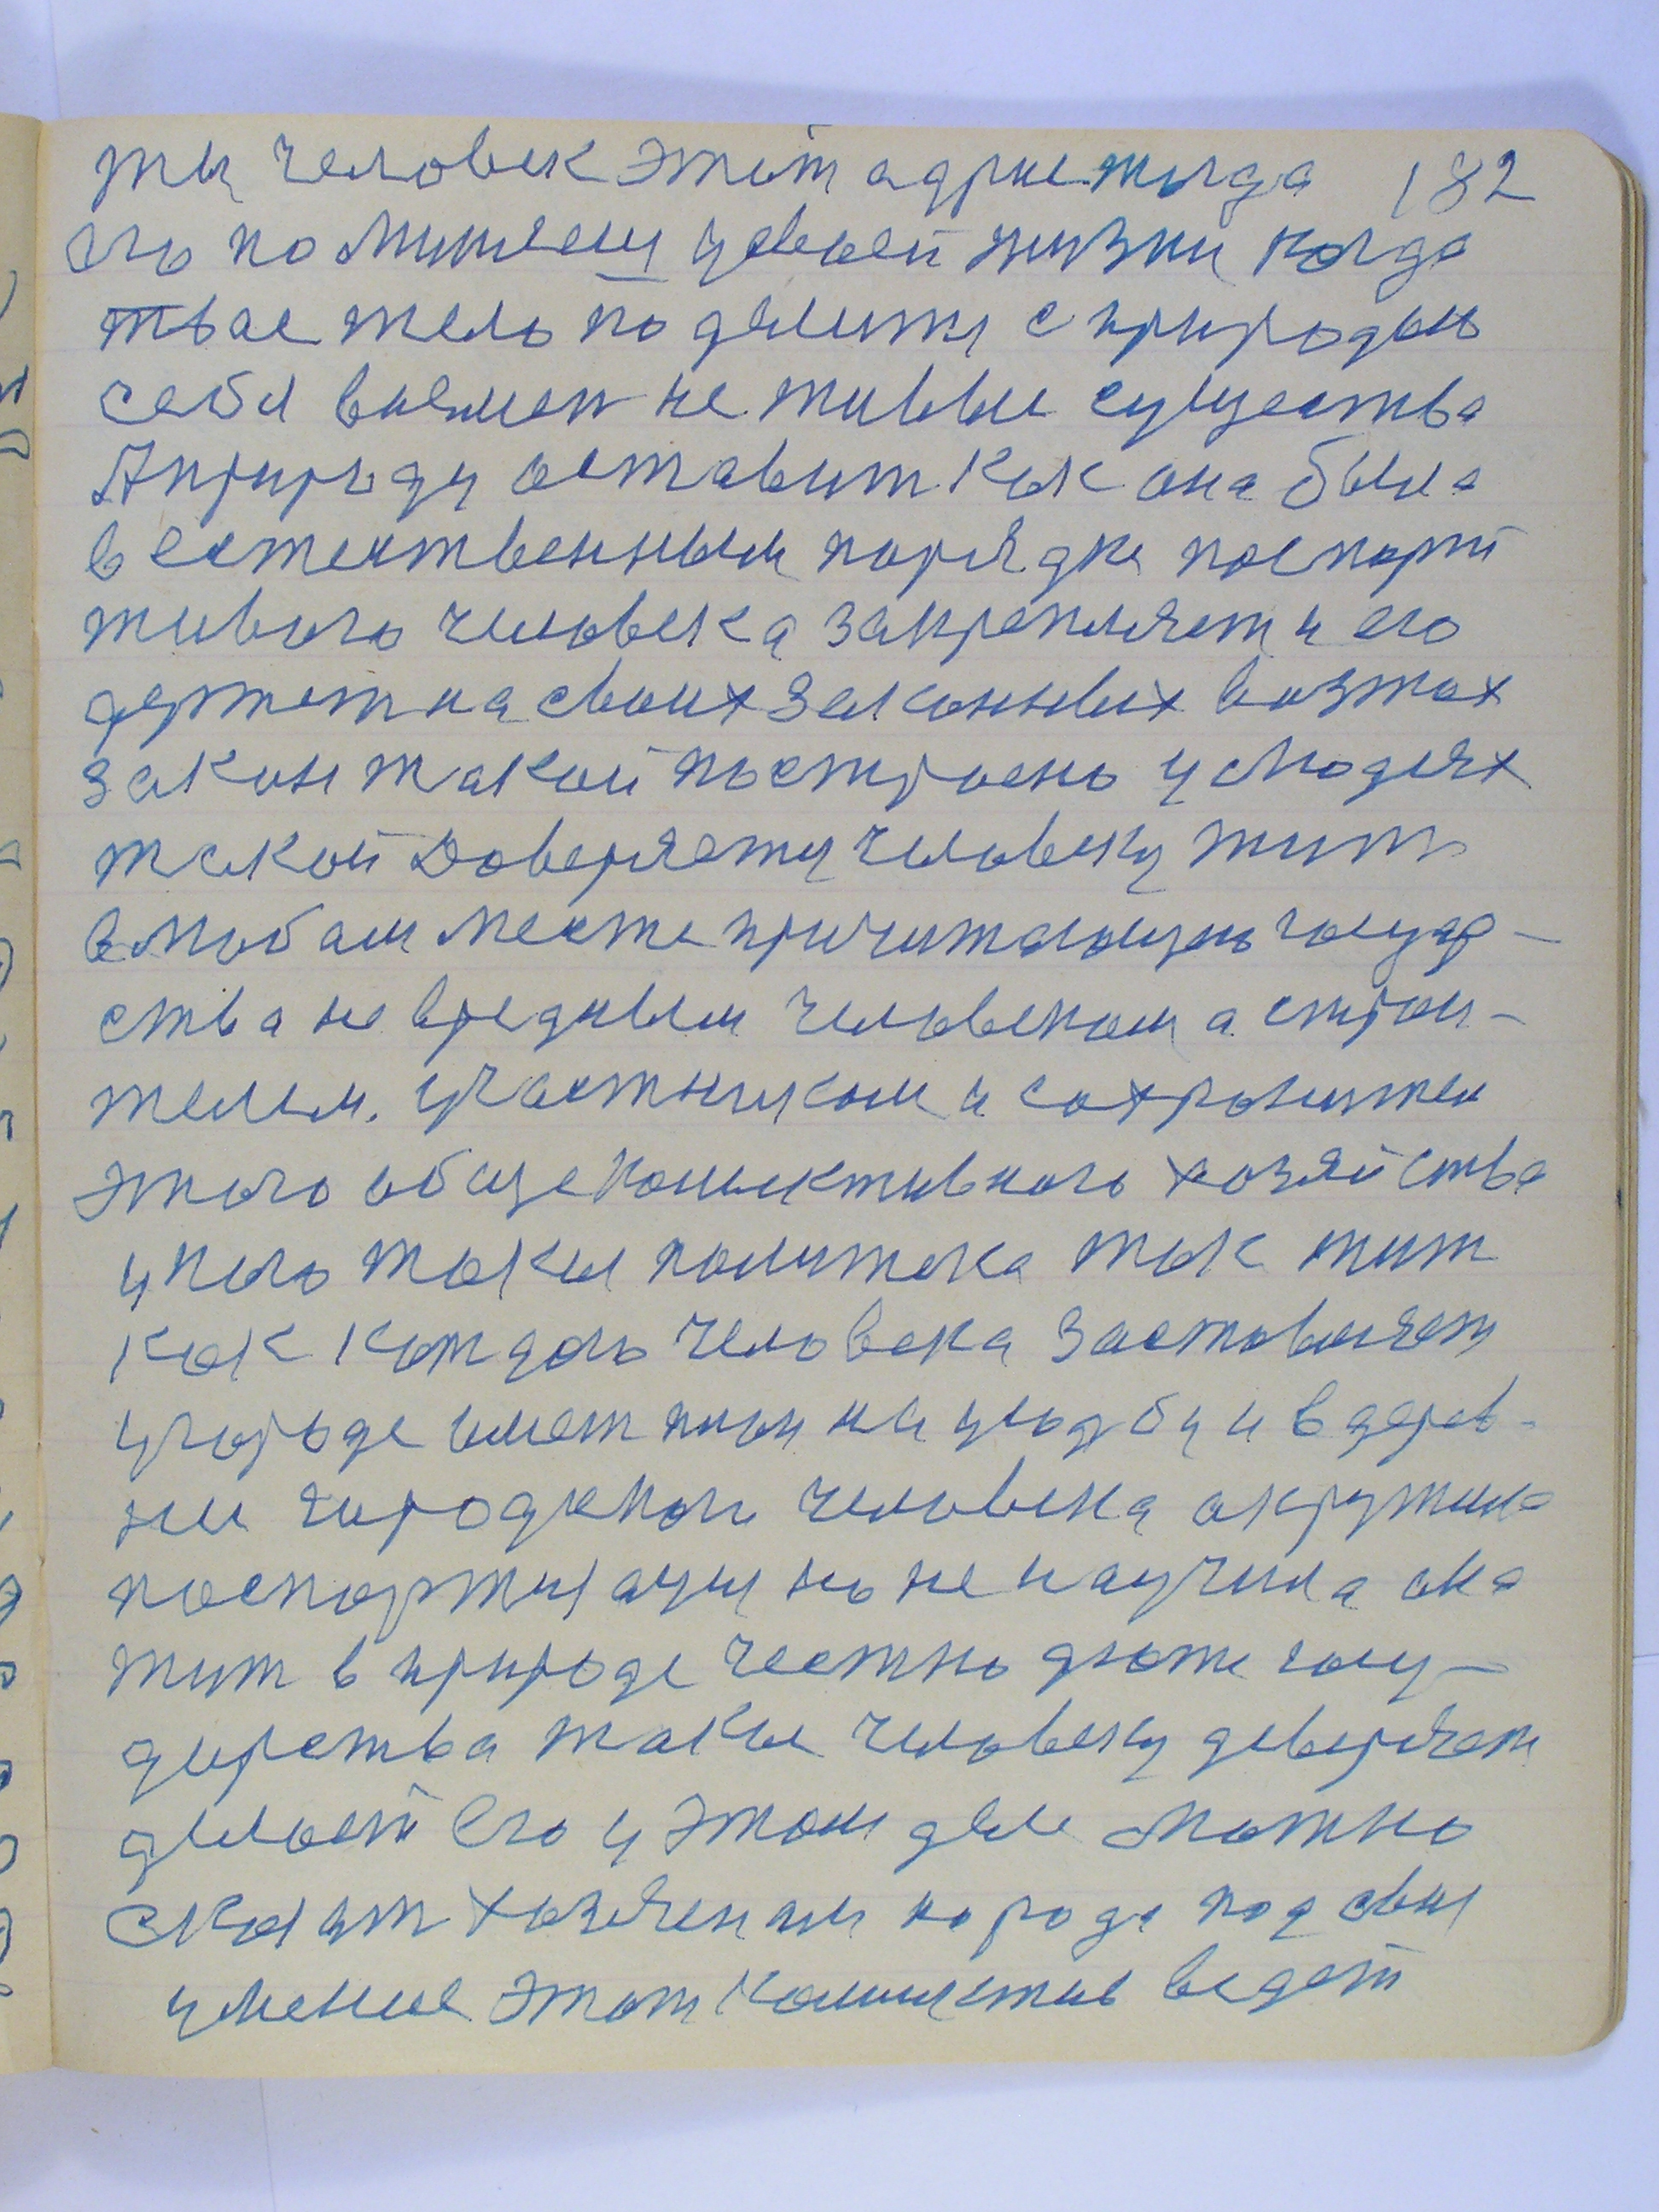 ты человек этот адрис тогда 182
его полишиш усвоей жизни когда
твае тело поделити с природаю
себя вазмет не живые существа
А природу оставит как она была
в естественным порядке паспорт
живого человека закрепляет и его
держет на своих законных вазжах
закон такой построено у людях
такой доверяету человеку жит
влюбам месте причитающею госуд-
ства не вредным человеком а строи-
телем. участником и сохранител
этого общеколиктивного хозяйства
унего такая политека так жит
как каждого человека заставляет
угороде имет план на усадбу и в дерев-
ни городского человека окружила
паспортизацыя но не научила она
жит в природе честно даже госу-
дарства такие человеку доверяет
делает его у этом деле можно
сказат хозяеним народа под свая
умение этот колликтив ведет